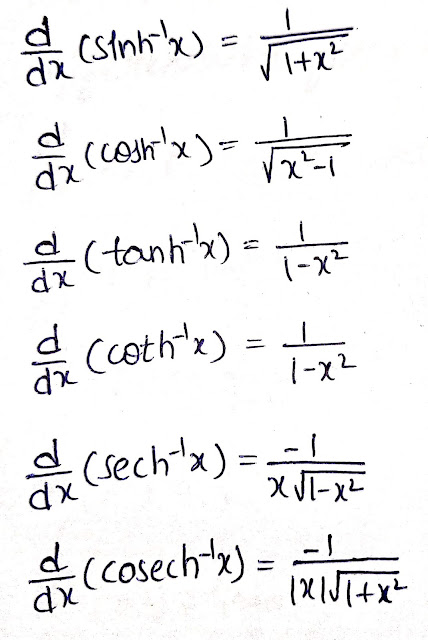 d/dx (sinh⁻¹x) = 1/√(1+x²)
d/dx (cosh⁻¹x) = 1/√(x²-1)
d/dx (tanh⁻¹x) = 1/(1-x²)
d/dx (coth⁻¹x) = 1/(1-x²)
d/dx (sech⁻¹x) = -1/(x√(1-x²))
d/dx (cosech⁻¹x) = -1/(|x|√(1+x²))